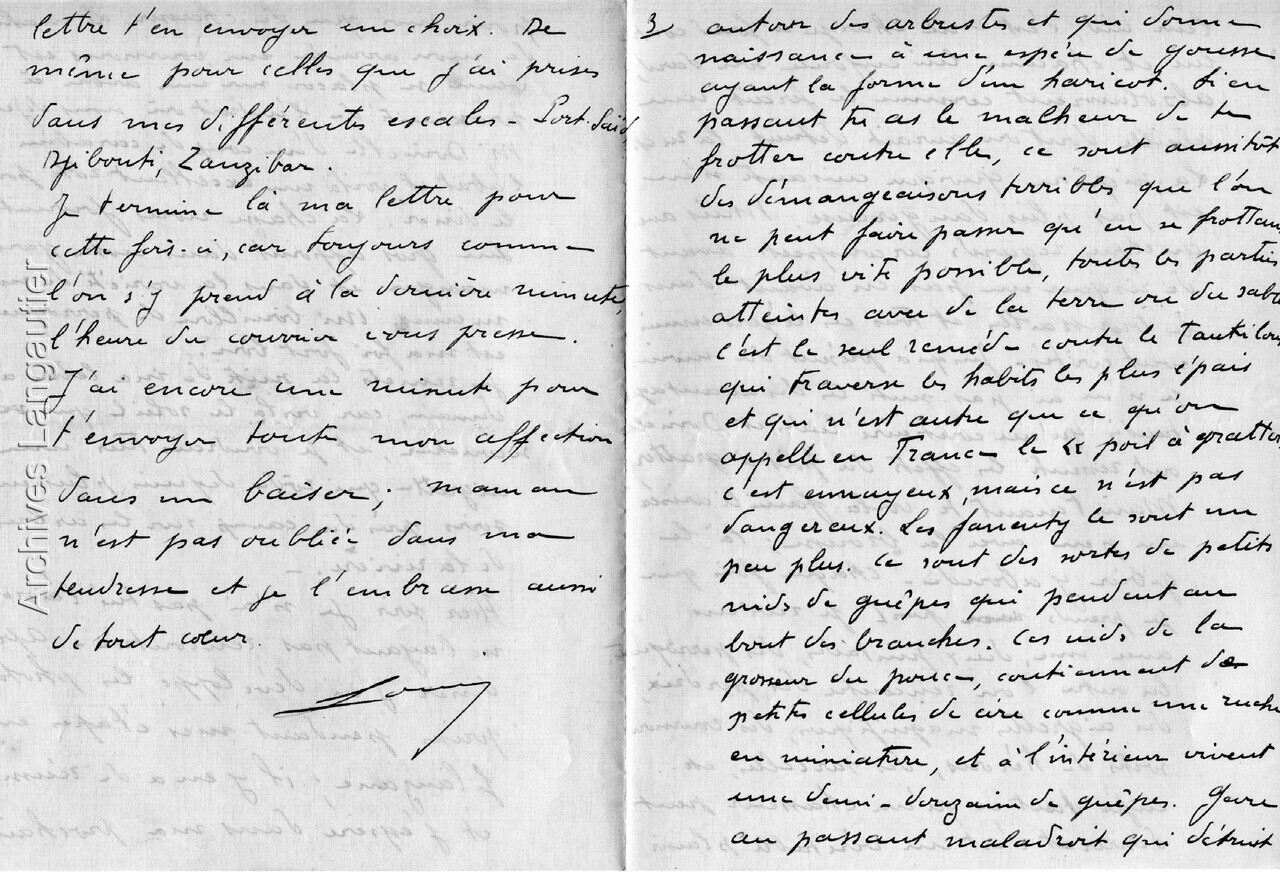 lettre t'en envoyer un choix. De
même pour celles que j'ai prises
dans mes différentes escales - Port-Saïd,
Djibouti, Zanzibar.
Je termine là ma lettre pour
cette fois-ci, car toujours comme
l'on s'y prend à la dernière minute,
l'heure du courrier vous presse.
J'ai encore une minute pour
t'envoyer toute mon affection
dans un baiser; maman
n'est pas oubliée dans ma
tendresse et je l'embrasse aussi
de tout cœur.
Archives Langautier
3/ autour des arbustes et qui donne
naissance à une espèce de gousse
ayant la forme d'un haricot. Si en
passant tu as le malheur de te
frotter contre elle, ce sont aussitôt
des démangeaisons terribles que l'on
ne peut faire passer qu'en se frottant
le plus vite possible, toutes les parties
atteintes avec de la terre ou du sable
c'est le seul remède contre le
qui traverse les habits les plus épais
et qui n'est autre que ce qu'on
appelle en France le « poil à gratter
c'est ennuyeux, mais ce n'est pas
dangereux. Les le sont un
peu plus. Ce sont des sortes de petits
nids de guêpes qui pendent au
bout des branches. Ces nids de la
grosseur du pouce, contiennent de
petites cellules de cire comme une ruche
en miniature, et à l'intérieur vivent
une demi-douzaine de guêpes. Gare
au passant maladroit qui détruit